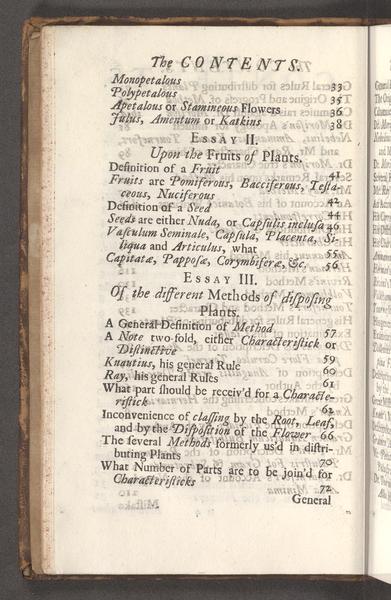 The CONTENTS.
Monopetalous 33
Polypetalous 35
Apetalous or Stamineous Flowers 36
Julus, Amentum or Katkins 38
ESSAY II.
Upon the Fruits of Plants.
Definition of a Fruit 41
Fruits are Pomiferous, Bacciferous, Teſta-
ceous, Nuciferous 42
Definition of a Seed 44
Seeds are either Nuda, or Capſulis incluſa 46
Vaſculum Seminale, Capſula, Placenta, Si-
liqua and Articulus, what 55
Capitatæ, Pappoſæ, Corymbiferæ, &c. 56
ESSAY III.
Of the different Methods of diſpoſing
Plants.
A General Definition of Method 57
A Note two-fold, either Characteriſtick or
Diſtinctive 59
Knautius, his general Rule 60
Ray, his general Rules 61
What part ſhould be receiv'd for a Characte-
riſtick 62
Inconvenience of claſſing by the Root, Leaf,
and by the Diſpoſition of the Flower 66
The ſeveral Methods formerly us'd in diſtri-
buting Plants 70
What Number of Parts are to be join'd for
Characteriſticks 72
General